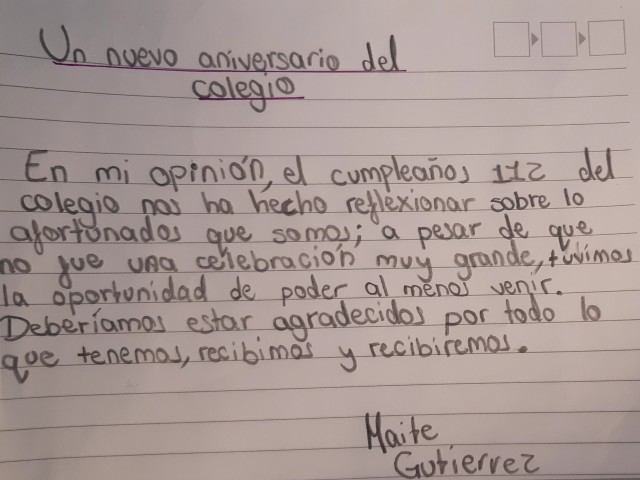 Un nuevo aniversario del
colegio
En mi opinión, el cumpleaños 112 del
colegio nos ha hecho reflexionar sobre lo
afortunados que somos; a pesar de que
no fue una celebración muy grande, tuvimos
la oportunidad de poder al menos venir.
Deberíamos estar agradecidos por todo lo
que tenemos, recibimos y recibiremos.
Maite
Gutierrez